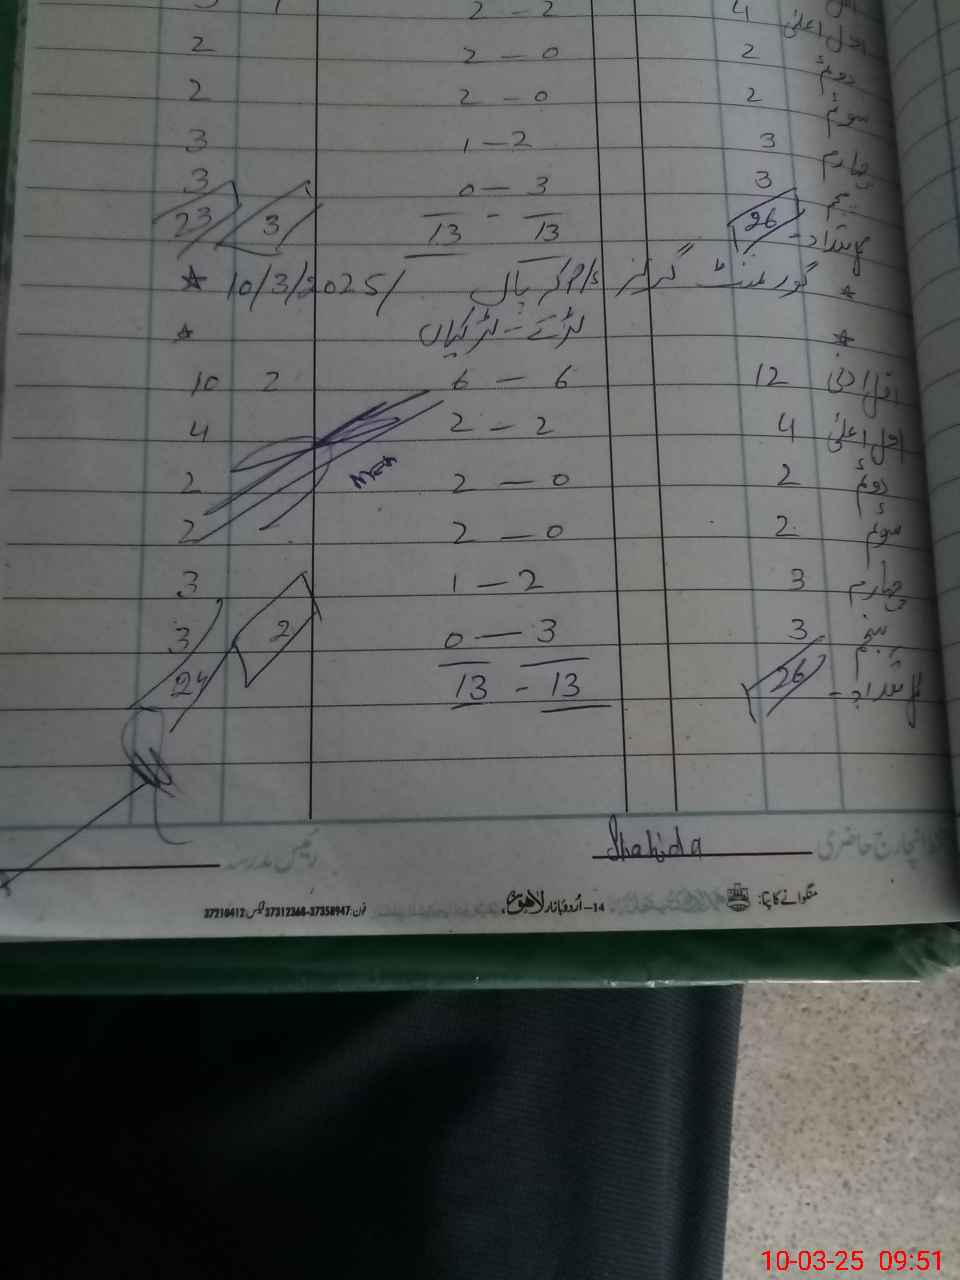 2 - 2 4
2 2 - 0 2 دوئم
2 2 - 0 2 سوئم
3 1 - 2 3 چہارم
3 0 - 3 3 پنجم
23 3 13 - 13 26
* 10/3/2025/ گورنمنٹ گرلز P/S *
* لڑکے - لڑکیاں *
10 2 6 - 6 12 اول ادنیٰ
4 2 - 2 4 اول اعلیٰ
2 2 - 0 2 دوئم
2 2 - 0 2 سوئم
3 1 - 2 3 چہارم
3 0 - 3 3 پنجم
24 2 13 - 13 26
انچارج حاضری Shahida رئیس مدرسہ
منگوانے کا پتا: 14-اُردو بازار لاہور، فون: 37312368-37358947 فیکس: 37210412
10-03-25 09:51